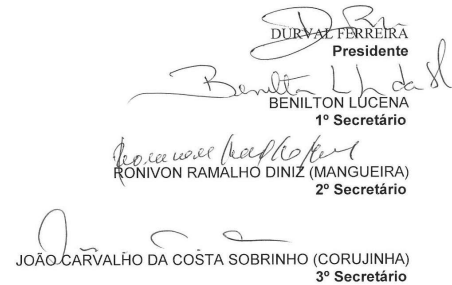 DURVAL FERREIRA
Presidente
Benilton
BENILTON LUCENA
1º Secretário
RONIVON RAMALHO DINIZ (MANGUEIRA)
2º Secretário
JOÃO CARVALHO DA COSTA SOBRINHO (CORUJINHA)
3º Secretário